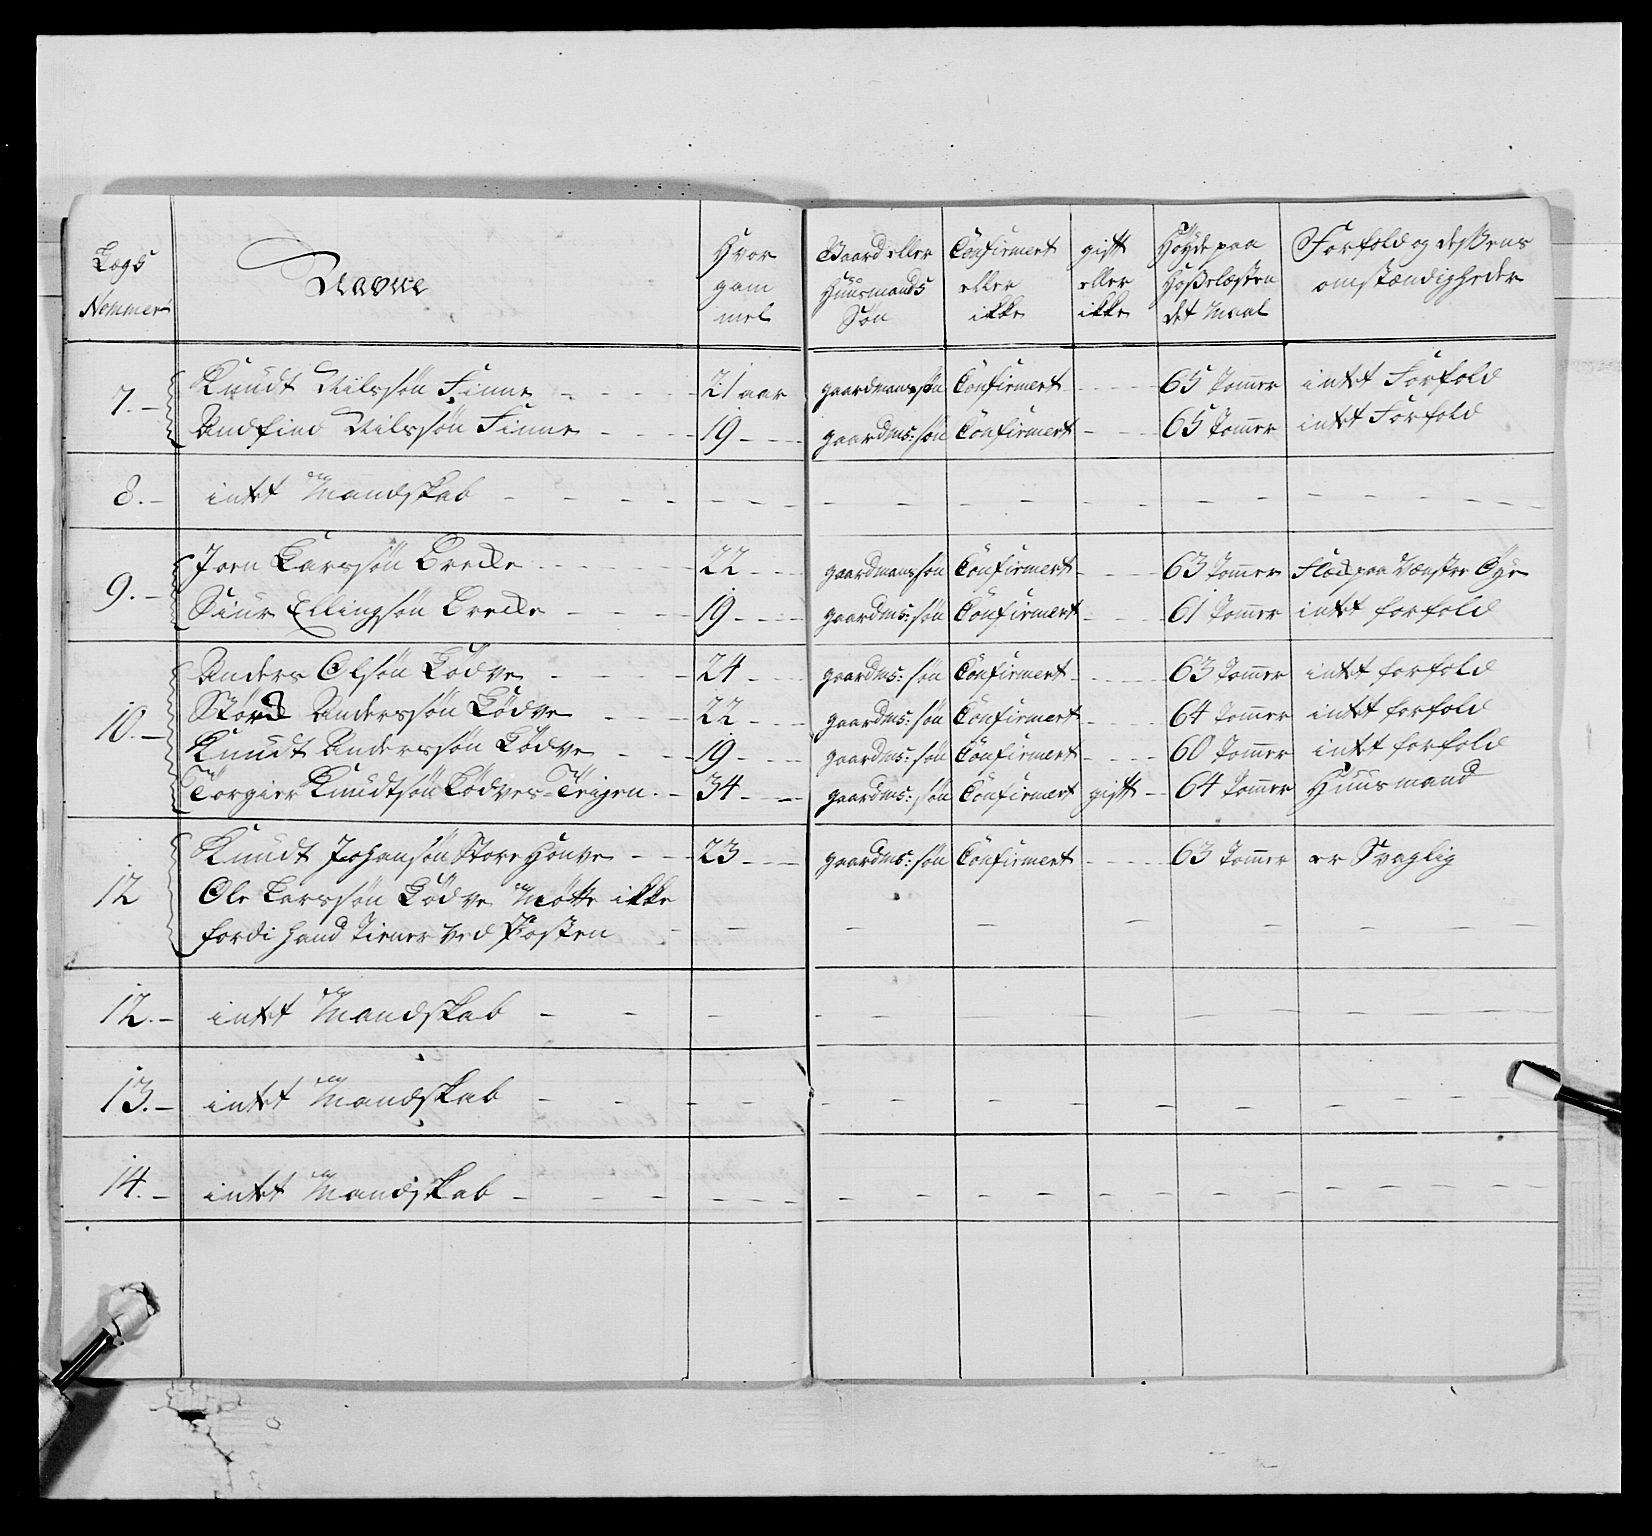 Lægs Nommer | Navne | Hvor gam mel | Gaard eller Huusmands Søn | Confirmert eller ikke | gift eller ikke | Høyde paa Hoselæsten det Maal | Forfald og desSens omstændigheder
7.- | Knudt Nilssøn Finne | 21 aar | gaardmanssøn | Confirmert | - | 65 Tommer | intet Forfald
Andfind Nilssøn Finne | 19 | gaardms: søn | Confirmert | - | 65 Tommer | intet Forfald
8.- | intet Mandskab
9.- | Joen Larssøn Brecke | 22 | gaardmanssøn | Confirmert | - | 63 Tommer | Flæk paa Vænstre Øye
Siur Ellingsøn Brecke | 19 | gaardms: søn | Confirmert | - | 61 Tommer | intet forfald
10.- | Anders Olsøn Lødve | 24 | gaardms: søn | Confirmert | - | 63 Tommer | intet forfald
Anderssøn Lødve | 22 | gaardms: søn | Confirmert | - | 64 Tommer | intet forfald
Knudt Anderssøn Lødve | 19 | gaardms: søn | Confirmert | - | 60 Tommer | intet forfald
Torgier Knudtsøn Lødves- | 34 | gaardms: søn | Confirmert | gift | 64 Tommer | Huusmand
12 | Knudt Johansøn Store | 23 | gaardms: søn | Confirmert | - | 63 Tommer | er Svaglig
Ole Larssøn Lødve Møtte ikke
fordi hand Tiener ved Posten
12.- | intet Mandskab
13.- | intet Mandskab
14.- | intet Mandskab